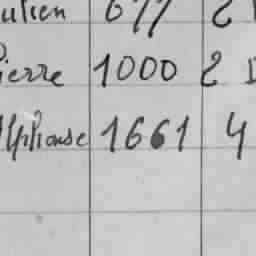 ulien 677 2
ierre 1000 2
Alphonse 1661 4